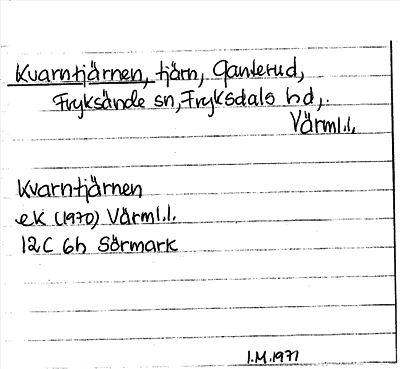 Kvarntjärnen, tjärn, Ganterud,
Fryksände sn, Fryksdals hd,
Värml.l.
Kvarntjärnen
ek (1970) Värml.l.
12C 6h Sörmark
I.M.1971